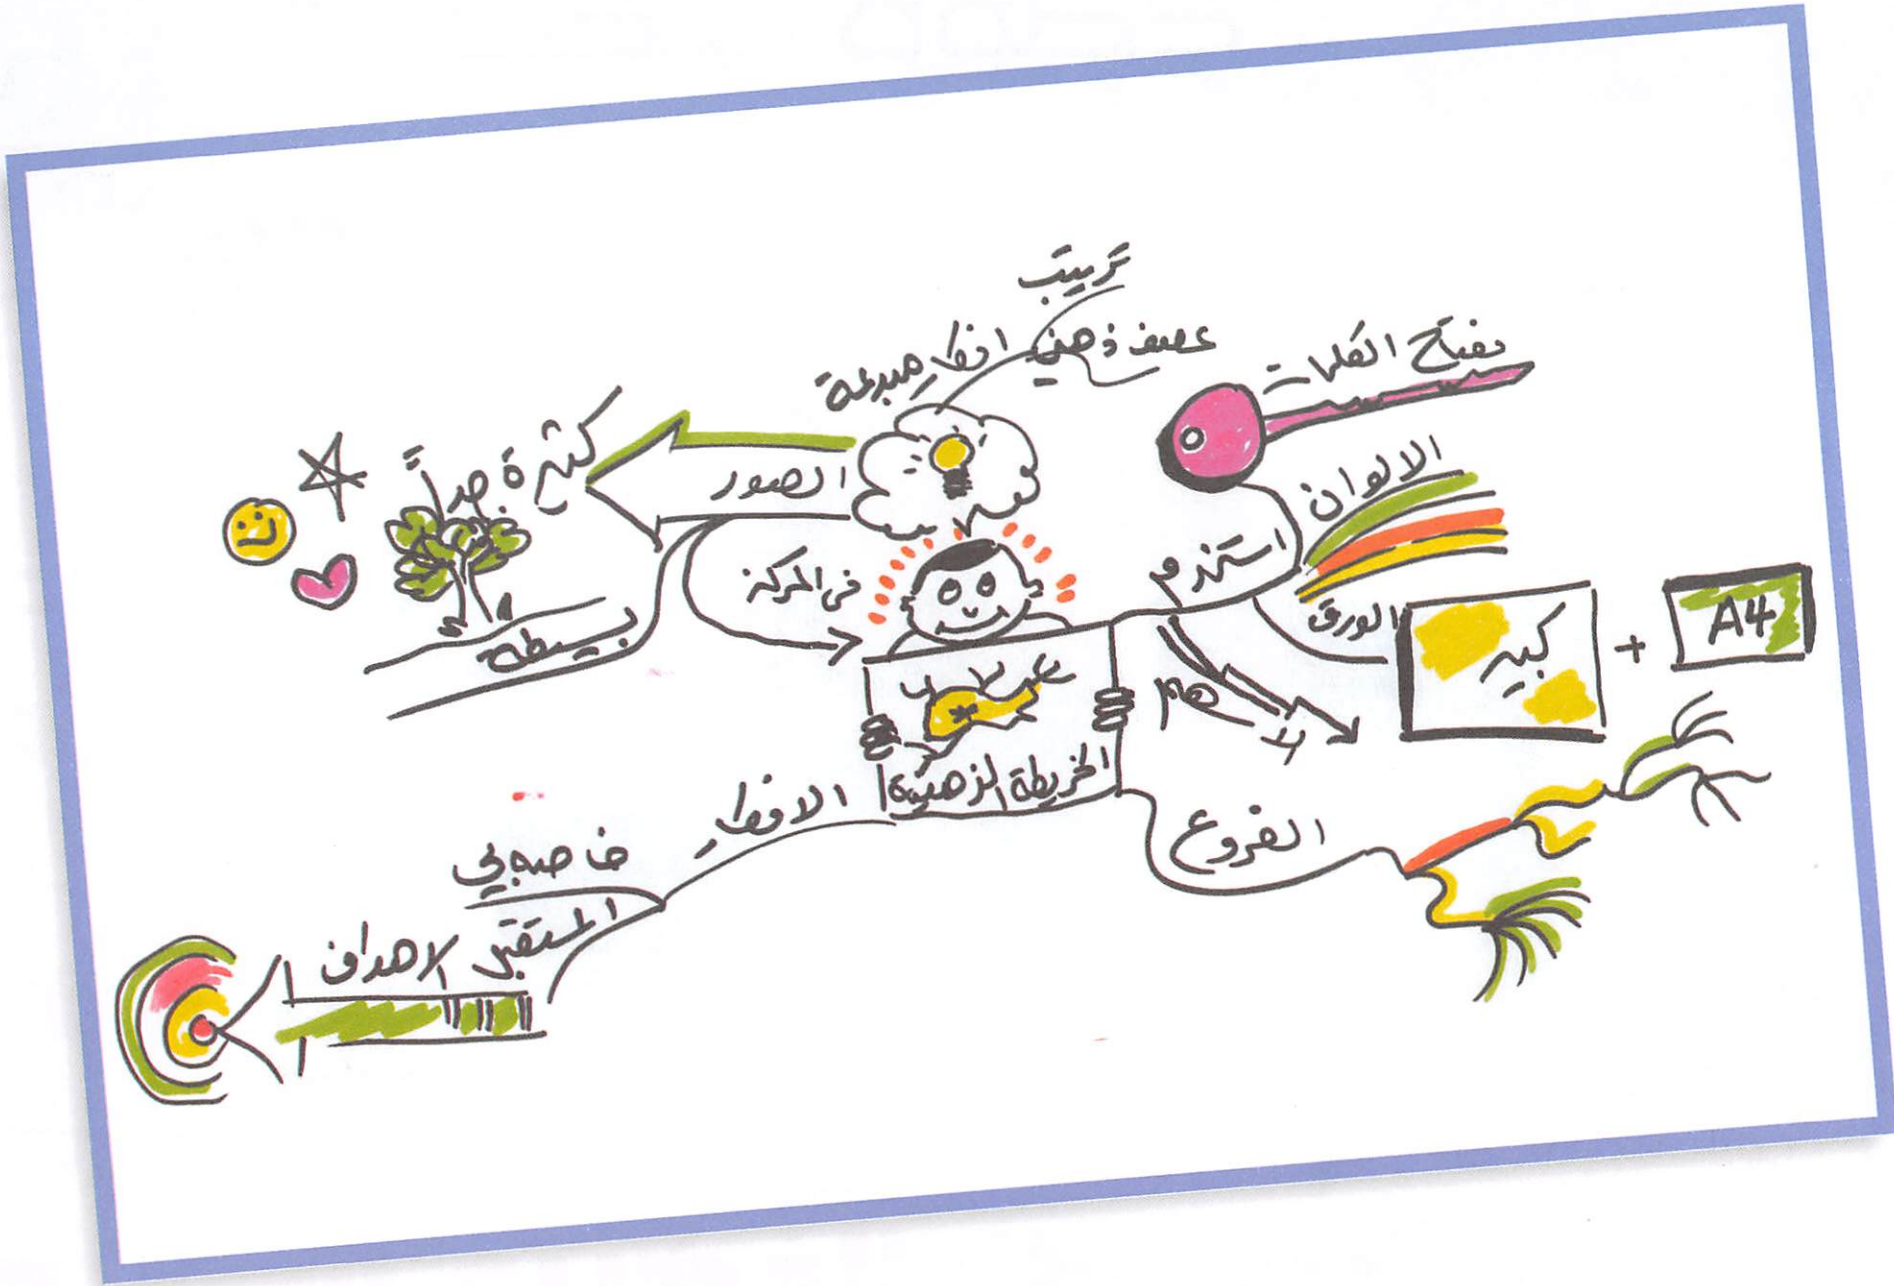 ترتيب
عصف ذهني
افكار مبدعة
مفتاح الكلمات
الالوان
استخدم
الورق
كبير
+
A4
الصور
كثيرة جداً
في المركز
بسيطة
الخريطة الذهنية
الفروع
الافكار
خاصه بي
المستقبل
الاهداف